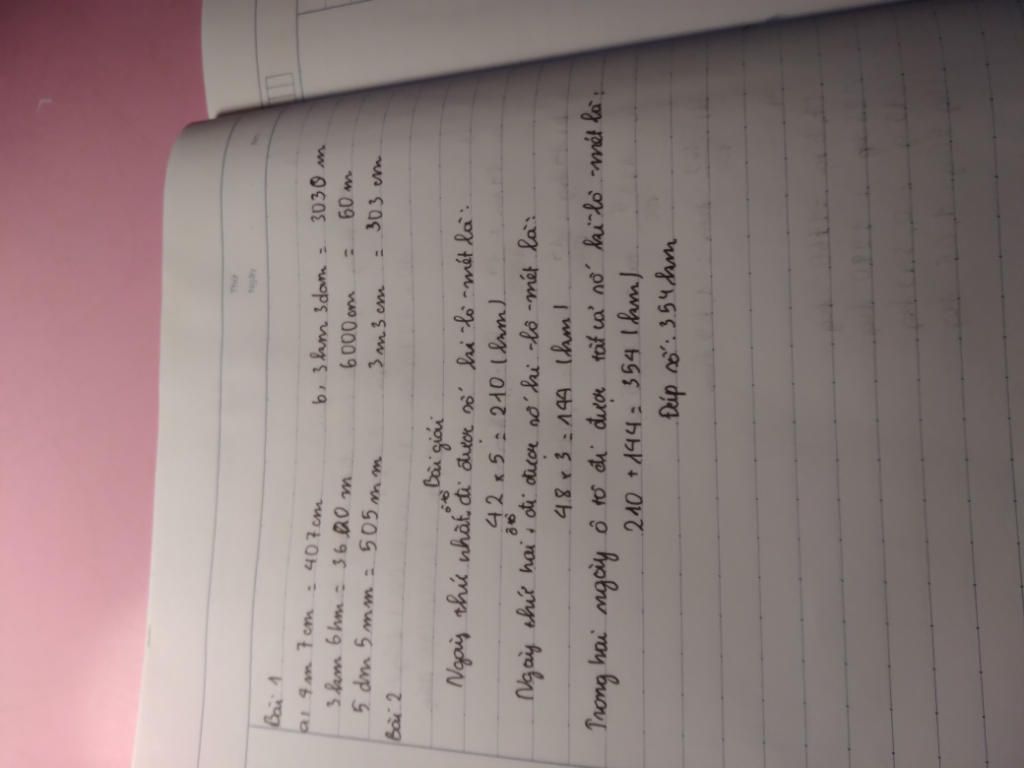 Thứ
Ngày
No.
Bài 1
a, 4m 7cm = 407cm b, 3hm 3dam = 3030 m
3km 6hm = 3600 m 6000cm = 60 m
5 dm 5 mm = 505 mm 3m3cm = 303 cm
Bài 2
Bài giải
Ngày thứ nhất ô tô đi được số ki-lô-mét là:
42 x 5 = 210 (km)
Ngày thứ hai ô tô đi được số ki-lô-mét là:
48 x 3 = 144 (km)
Trong hai ngày ô tô đi được tất cả số ki-lô-mét là:
210 + 144 = 354 (km)
Đáp số: 354km